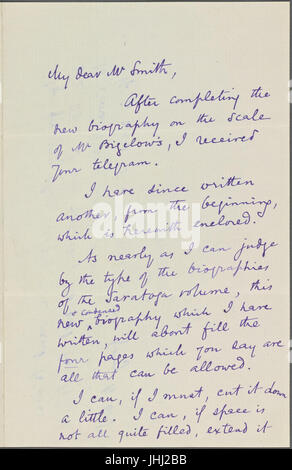 My dear Mr Smith,
After completing the
new biography on the scale
of Mr Bigelow's, I received
your telegram.
I have since written
another, from the beginning,
which is herewith enclosed.
As nearly as I can judge
by the type of the biographies
of the Saratoga volume, this
& condensed
new ^ biography which I have
written, will about fill the
four pages which you say are
all that can be allowed.
I can, if I must, cut it down
a little. I can, if space is
not all quite filled, extend it
alamy
alamy stock photo
JHJ2BB
www.alamy.com